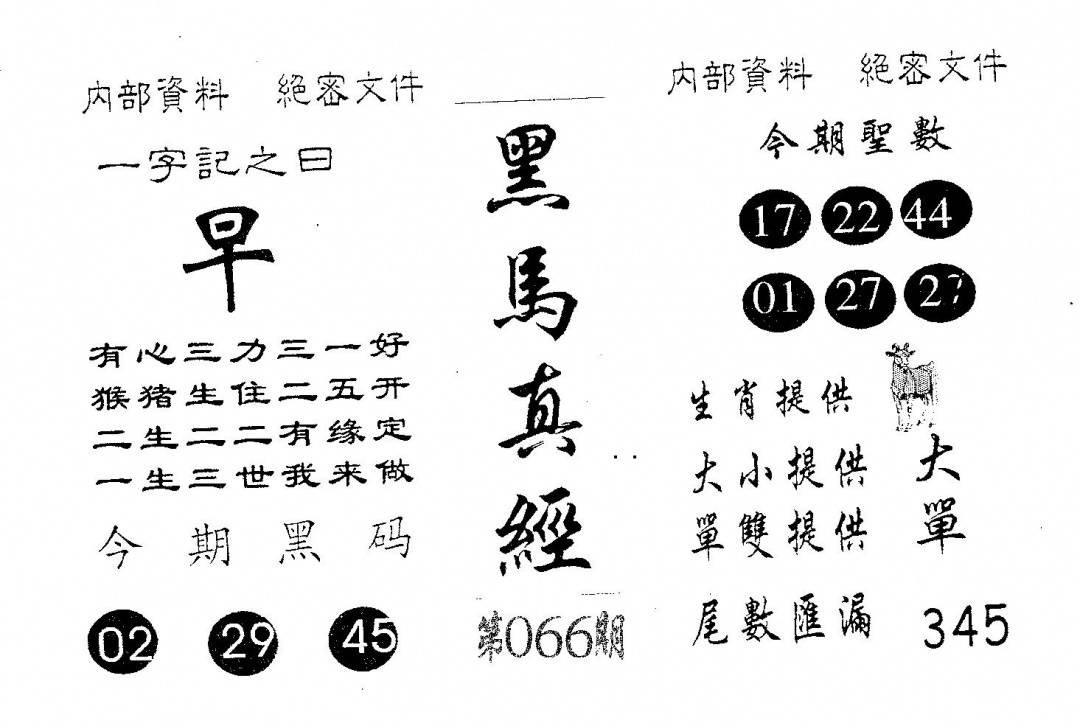 內部資料 絕密文件
一字記之曰
早
有心三力三一好
猴猪生住二五开
二生二二有缘定
一生三世我来做
今期黑码
02 29 45
黑馬真經
第066期
內部資料 絕密文件
今期聖數
17 22 44
01 27 27
生肖提供
大小提供 大
單雙提供 單
尾數匯漏 345